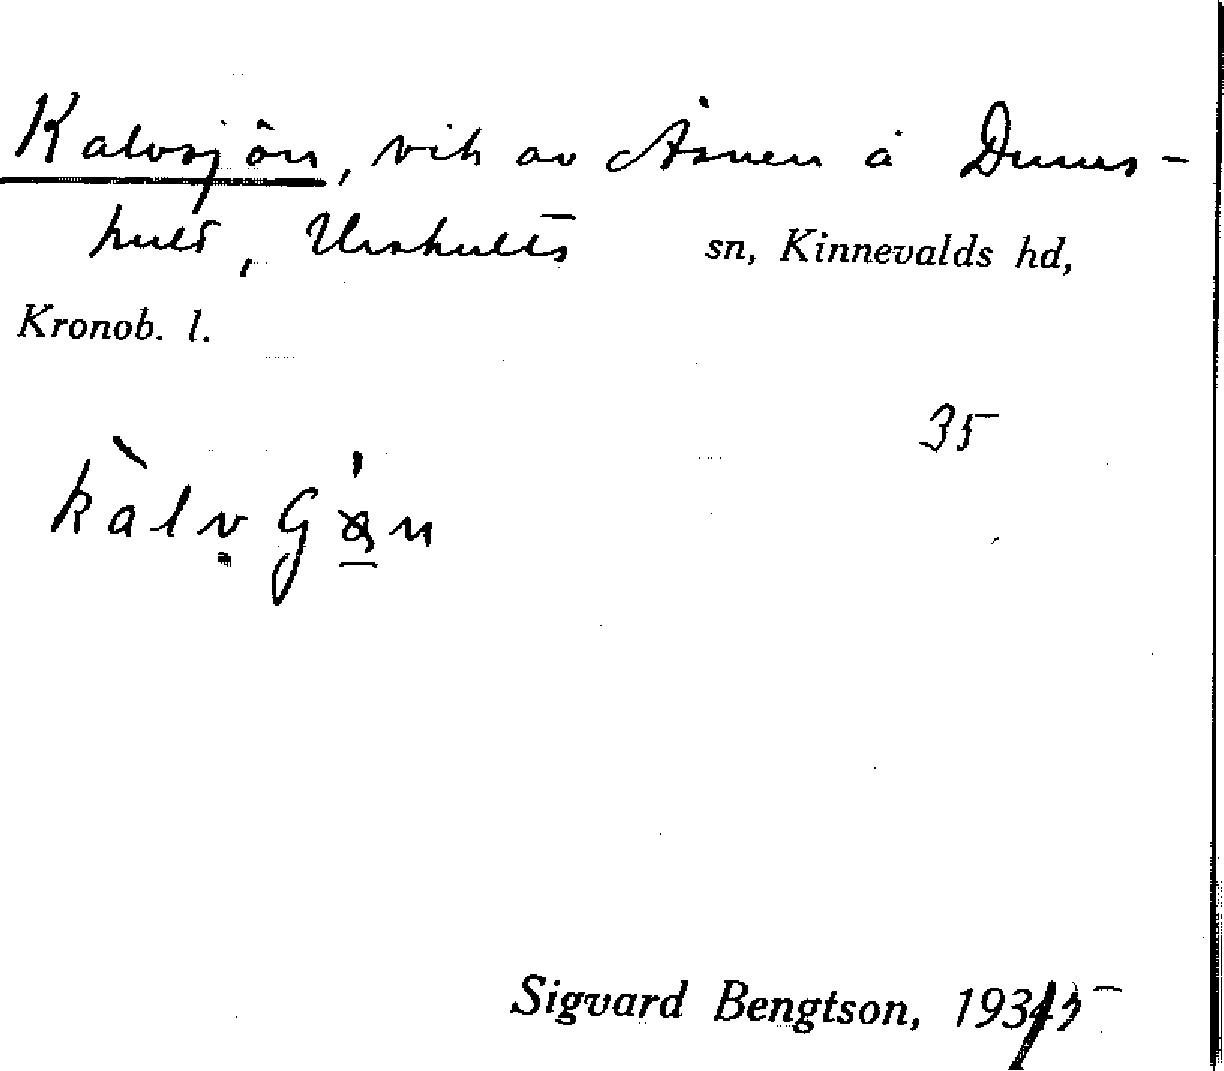 Kalvsjön, vik av Åsnen å Duns-
hult, Urshults sn, Kinnevalds hd,
Kronob. l.
35
Sigvard Bengtson, 1935